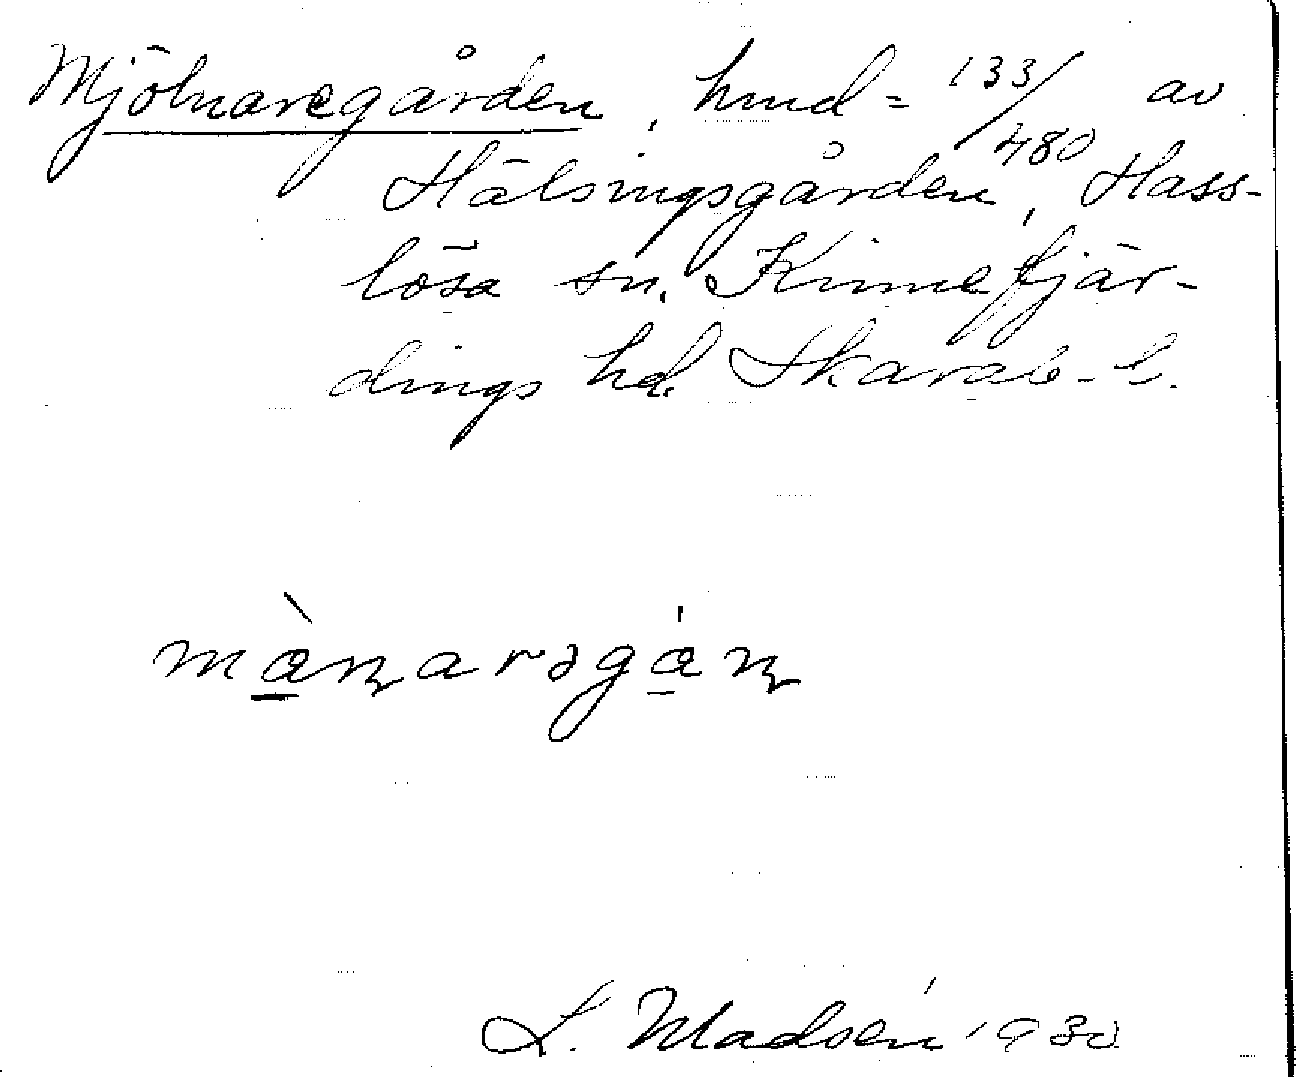 Mjölnaregården, hmd = 133/480 av
Hälsingsgården, Hass-
lösa sn. Kinnefjär-
dings hd. Skarab. l.
L. Madsén 1930